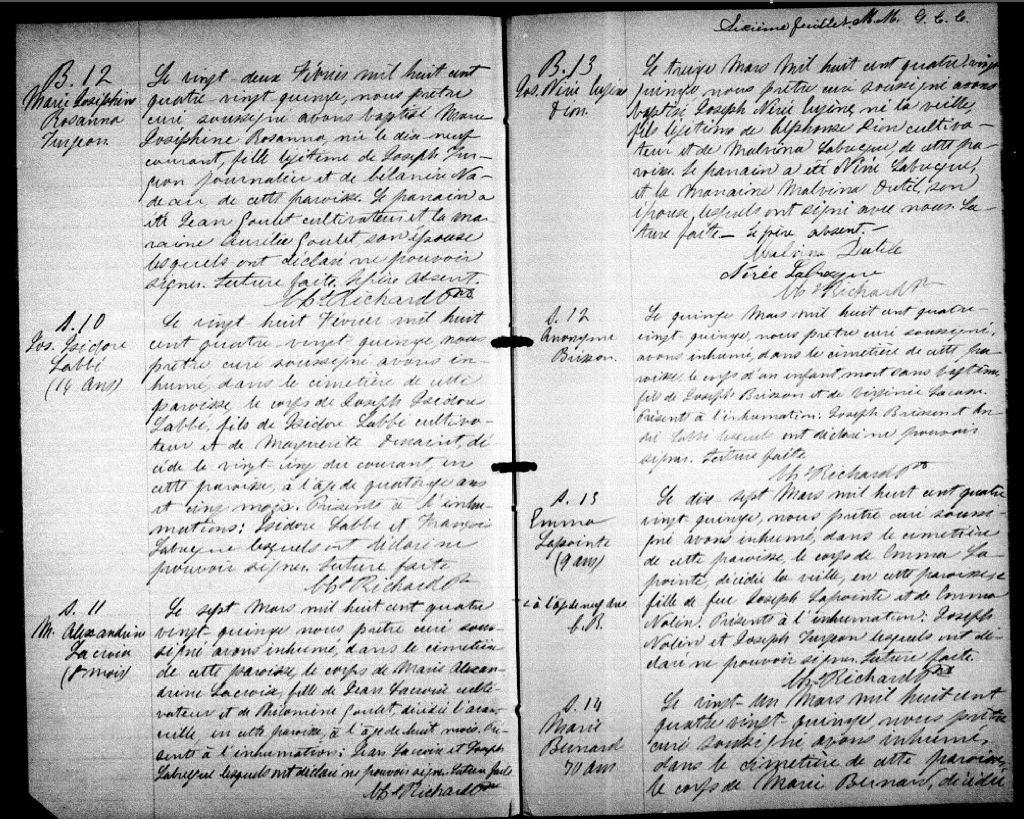 B. 12
Marie Josephine
Rosanna
Turgeon
Le vingt-deux Février mil huit cent
quatre vingt quinze, nous prêtre
curé soussigné avons baptisé Marie
Josephine Rosanna née le dix neuf
courant, fille légitime de Joseph Tur-
geon journalier et de
de cette paroisse. Le parrain a
été Jean Goulet cultivateur et la ma-
raine Aurélie Goulet son épouse
lesquels ont déclaré ne pouvoir
signer. Lecture faite. Le père absent.
Chs Richard Ptre
S. 10
Jos. Isidore
Labbé
(14 ans)
Le vingt huit Février mil huit
cent quatre-vingt quinze, nous
prêtre curé soussigné avons in-
humé, dans le cimetière de cette
paroisse, le corps de Joseph Isidore
Labbé, fils de Isidore Labbé cultiva-
teur et de Marguerite Dessaint, dé-
cédé le vingt-cinq du courant, en
cette paroisse, à l'âge de quatorze ans
et cinq mois. Présents à l'inhu-
mations: Isidore Labbé et François
Labreque lesquels ont déclaré ne
pouvoir signer. Lecture faite
Chs Richard Ptre
S. 11
M. Alexandrine
Lacroix
(8 mois)
Le sept Mars mil huit cent quatre
vingt-quinze nous prêtre curé sous-
signé avons inhumé, dans le cimetière
de cette paroisse, le corps de Marie Alexan-
drine Lacroix, fille de Jean Lacroix culti-
vateur et de Philomène Goulet, décédée l'avant
veille, en cette paroisse, à l'âge de huit mois. Pré-
sents à l'inhumation: Jean Lacroix et Joseph
Labrecque lesquels ont déclaré ne pouvoir signer. Lecture faite
Chs Richard Ptre
Sixième feuillet. M. M. G. C. C.
B. 13
Jos. Néré Eugène
Dion.
Le treize Mars mil huit cent quatre vingt
quinze, nous prêtre curé soussigné avons
baptisé Joseph Néré Eugène, né la veille
fils légitime de Alphonse Dion cultiva-
teur et de Malvina Labreque de cette pa-
roisse. Le parrain a été Néré Labreque,
et la marraine Malvina Dutil, son
épouse, lesquels ont signé avec nous. Lec-
ture faite - Le père absent. -
Malvina Dutile
Nérée Labreque
Chs Richard Ptre
S. 12
Anonyme
Brisson.
Le quinze Mars mil huit cent quatre-
vingt-quinze, nous prêtre curé soussigné,
avons inhumé, dans le cimetière de cette pa-
roisse, le corps d'un enfant mort sans baptême
fils de Joseph Brisson et de Virginie Lacasse.
Présents à l'inhumation: Joseph Brisson et An-
dré Labbé lesquels ont déclaré ne pouvoir
signer. Lecture faite
Chs Richard Ptre
S. 13
Emma
Lapointe
(9 ans)
à l'âge de neuf ans
C. R.
Le dix-sept Mars mil huit cent quatre
vingt-quinze, nous prêtre curé soussi-
gné avons inhumé, dans le cimetière
de cette paroisse, le corps de Emma La-
pointe, décédée la veille, en cette paroisse
fille de feu Joseph Lapointe et de Emma
Nolin. Présents à l'inhumation: Joseph
Nolin et Joseph Turgeon lesquels ont dé-
claré ne pouvoir signer. Lecture faite.
Chs Richard Ptre
S. 14
Marie
Bernard
70 ans
Le vingt-un Mars mil huit cent
quatre vingt-quinze, nous prêtre
curé soussigné avons inhumé,
dans le cimetière de cette paroisse,
le corps de Marie Bernard, décédée